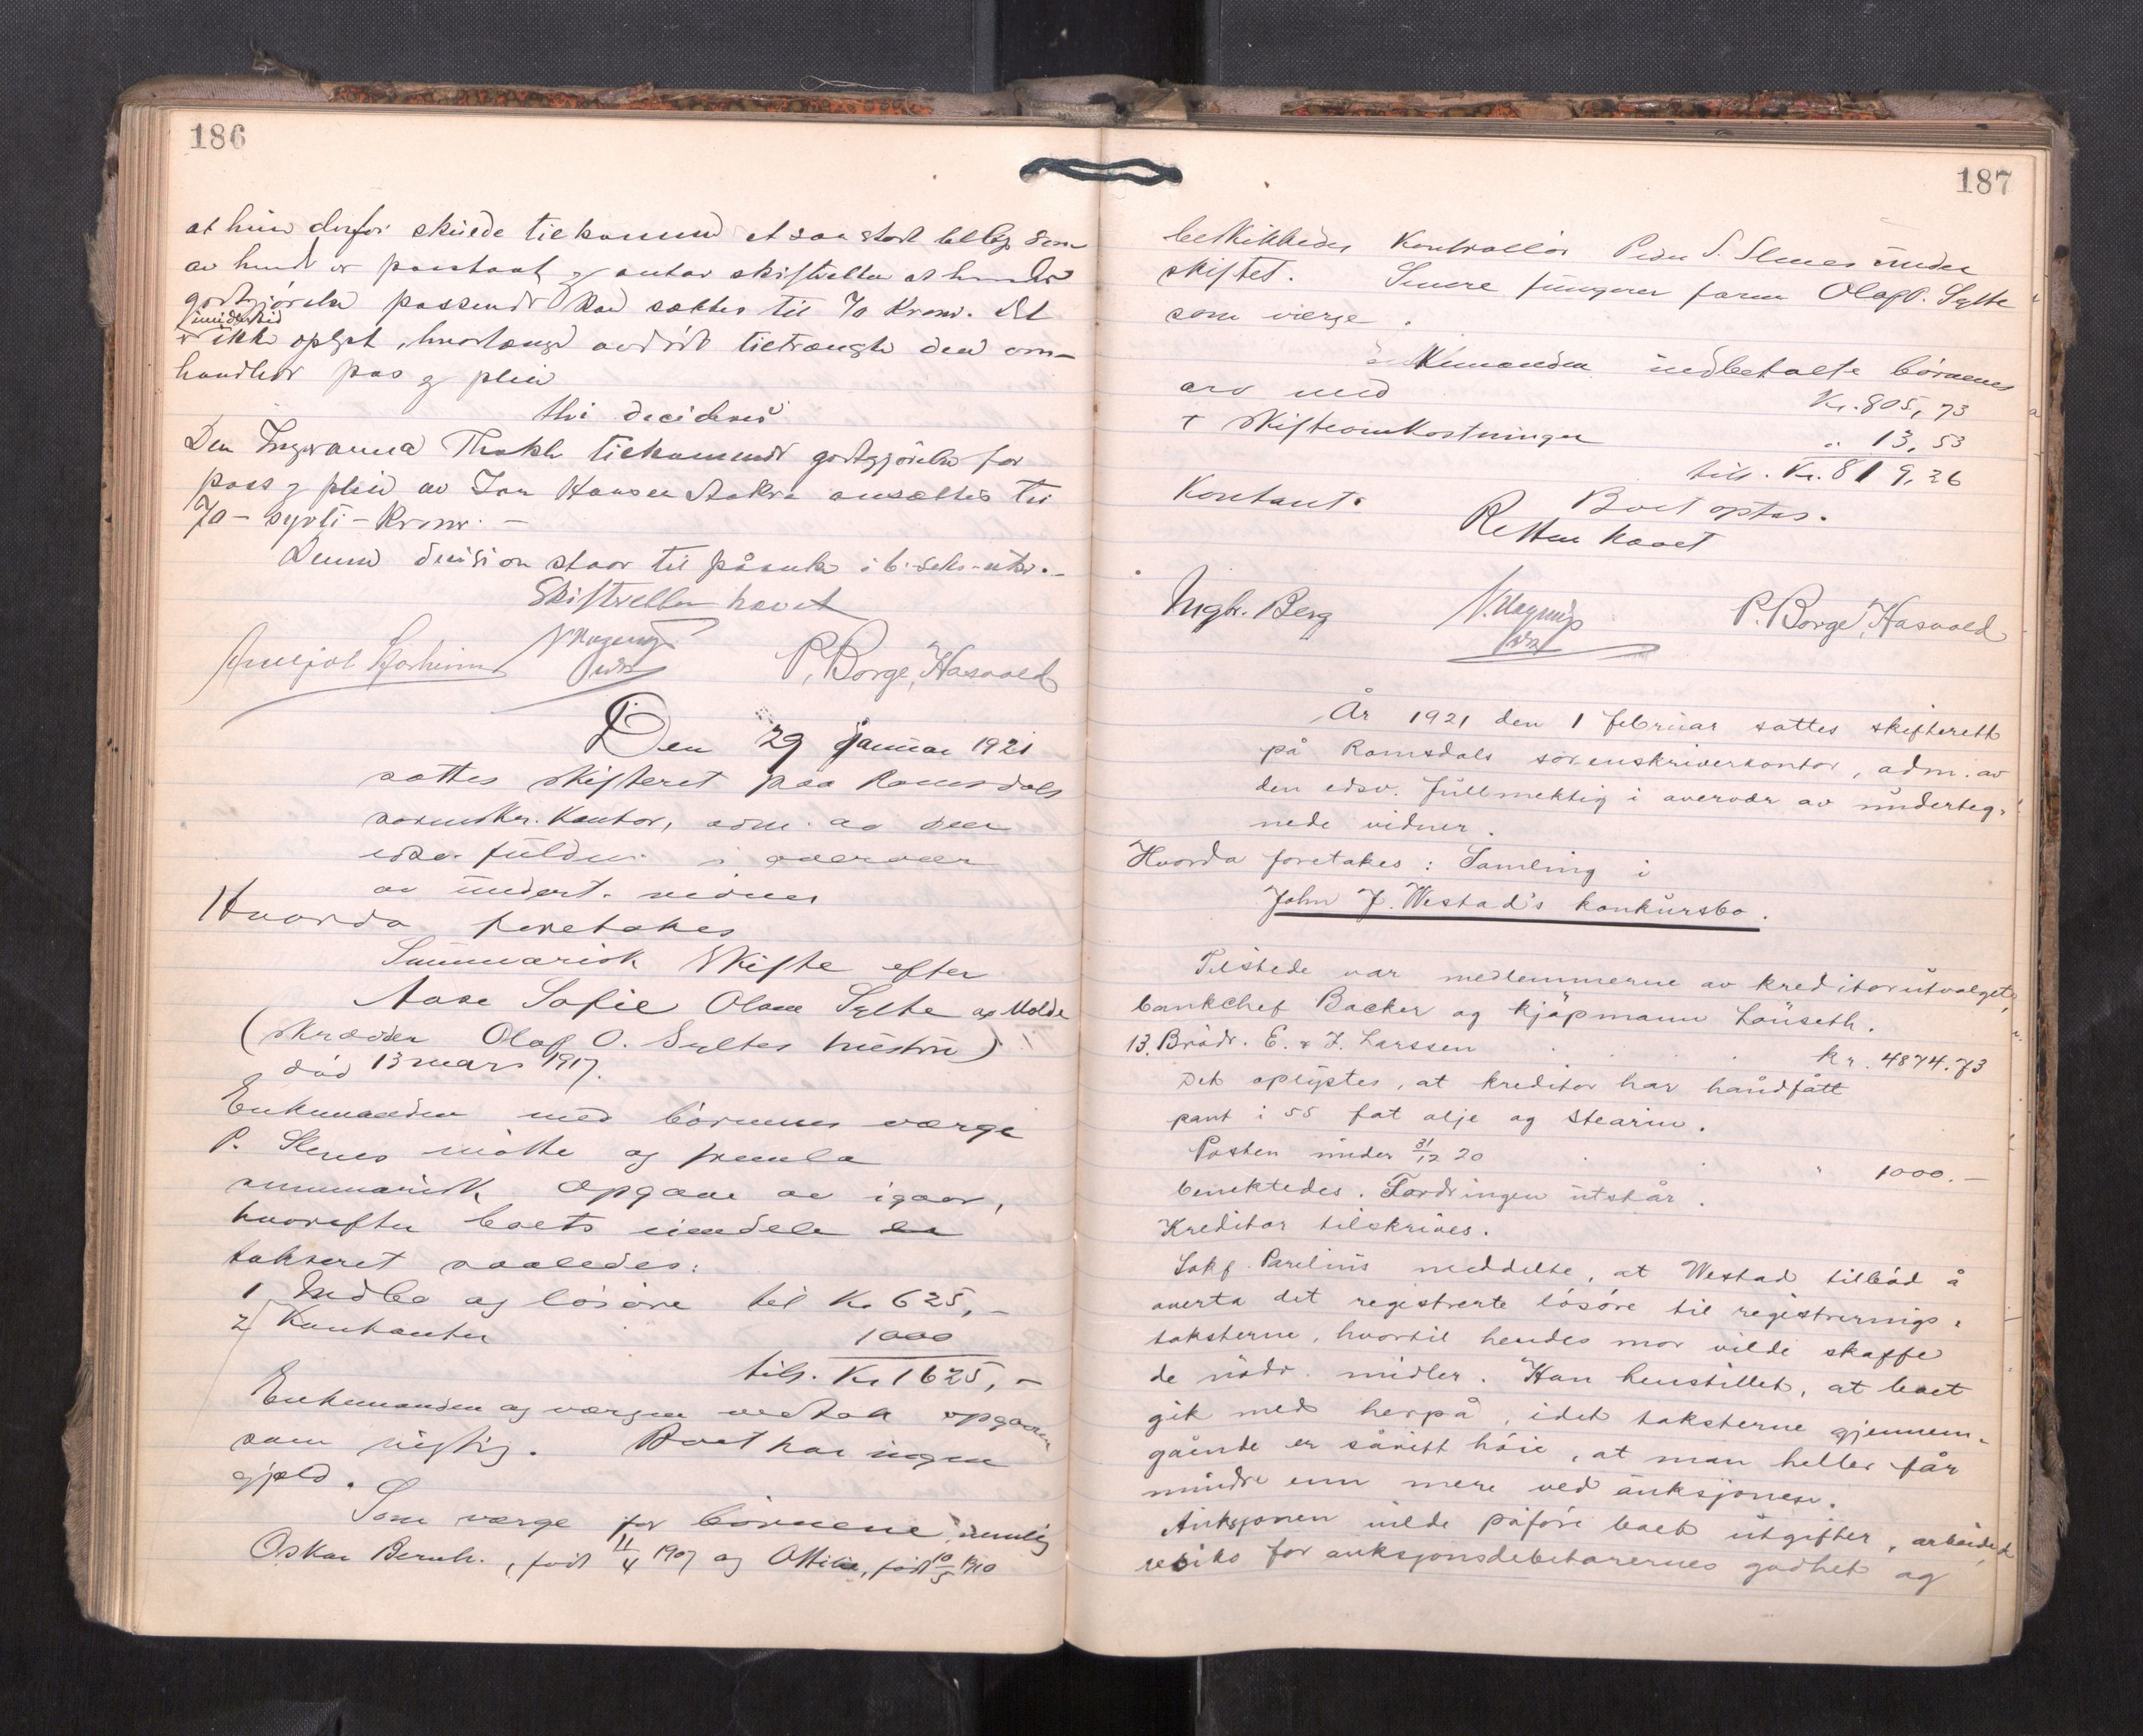 186
at hun derfor skulde tilkomme et saa stort beløp som
av hende er paastaat og antar skifteretten at hendes
godtgjörelse passende kan sættes til 70 Kroner. Det
imidlertid
er ikke oplyst, hvorlænge avdöde tiltrængte den om-
handlede pas og pleie
thi decideres
Den Ingvanna Thokle tilkommende godtgjörelse for
pass og pleie av Jon Hansen Aakre ansættes til
70 - sytti - Kroner. -
Denne decision staar til påanke i 6 - seks - uker. -
Skifteretten hævet
P. Borge, Hasvold
Den 29 januar 1921
sattes skifteret paa Romsdals
sorenskr. kontor, adm. av den
edsv. fuldm. i overvær
av undert. vidner
Hvorda foretokes
Summarisk Skifte efter
Aase Sofie Olsen Sylte av Molde
(skrædder Olaf O. Syltes hustru)
död 13 mars 1917.
Enkemanden med börnenes værge
P. Slenes mötte og fremla
summarisk opgave av igaar,
hvorefter boets eiendele er
takseret saaledes:
1 Indbo og lösöre til Kr 625,-
2 Kontanter 1000
tils. Kr 1625,-
Enkemanden og værgen vedtok opgaven
som rigtig. Boet har ingen
gjæld.
Som værge for börnene, nemlig
Oskar Bernh., født 11/4 1907 og Ottilie, født 10/5 1910
187
beskikkedes Kontrollör Peder S. Slenes under
skiftet. Senere fungerer faren Olaf O. Sylte
som værge.
Enkemanden indbetalte börnenes
arv med Kr. 805,73
+ skifteomkostninger " 13,53
tils. Kr. 819,26
Kontant.
Boet optas.
Retten hævet
Ingbr. Berg P. Borge, Hasvold
År 1921 den 1 februar sattes skifterett
på Romsdals sorenskriverkontor, adm. av
den edsv. fullmektig i overvær av underteg-
nede vidner.
Hvorda foretakes: Samling i
John J. Westad's konkursbo.
Tilstede var medlemmerne av kreditorutvalget,
bankchef Backer og kjøpmann Lauseth.
13. Brödr. E. & J. Larssen kr. 4874.73
Det oplystes, at kreditor har håndfått
pant i 55 fat olje og stearin.
Posten under 31/12 20 " 1000.-
benektedes. Fordringen utstår.
Kreditor tilskrives.
Sakf. Parelius meddelte, at Westad tilbød å
overta det registrerte lösöre til registrerings-
taksterne, hvortil hendes mor vilde skaffe
de nödv. midler. Han henstillet, at boet
gik med herpå, idet taksterne gjennem-
gående er såvitt höie, at man heller får
mindre enn mere ved auksjonen.
Auksjonen vilde påföre boet utgifter, arbeide,
resiko for auksjonsdebitorernes godhet og